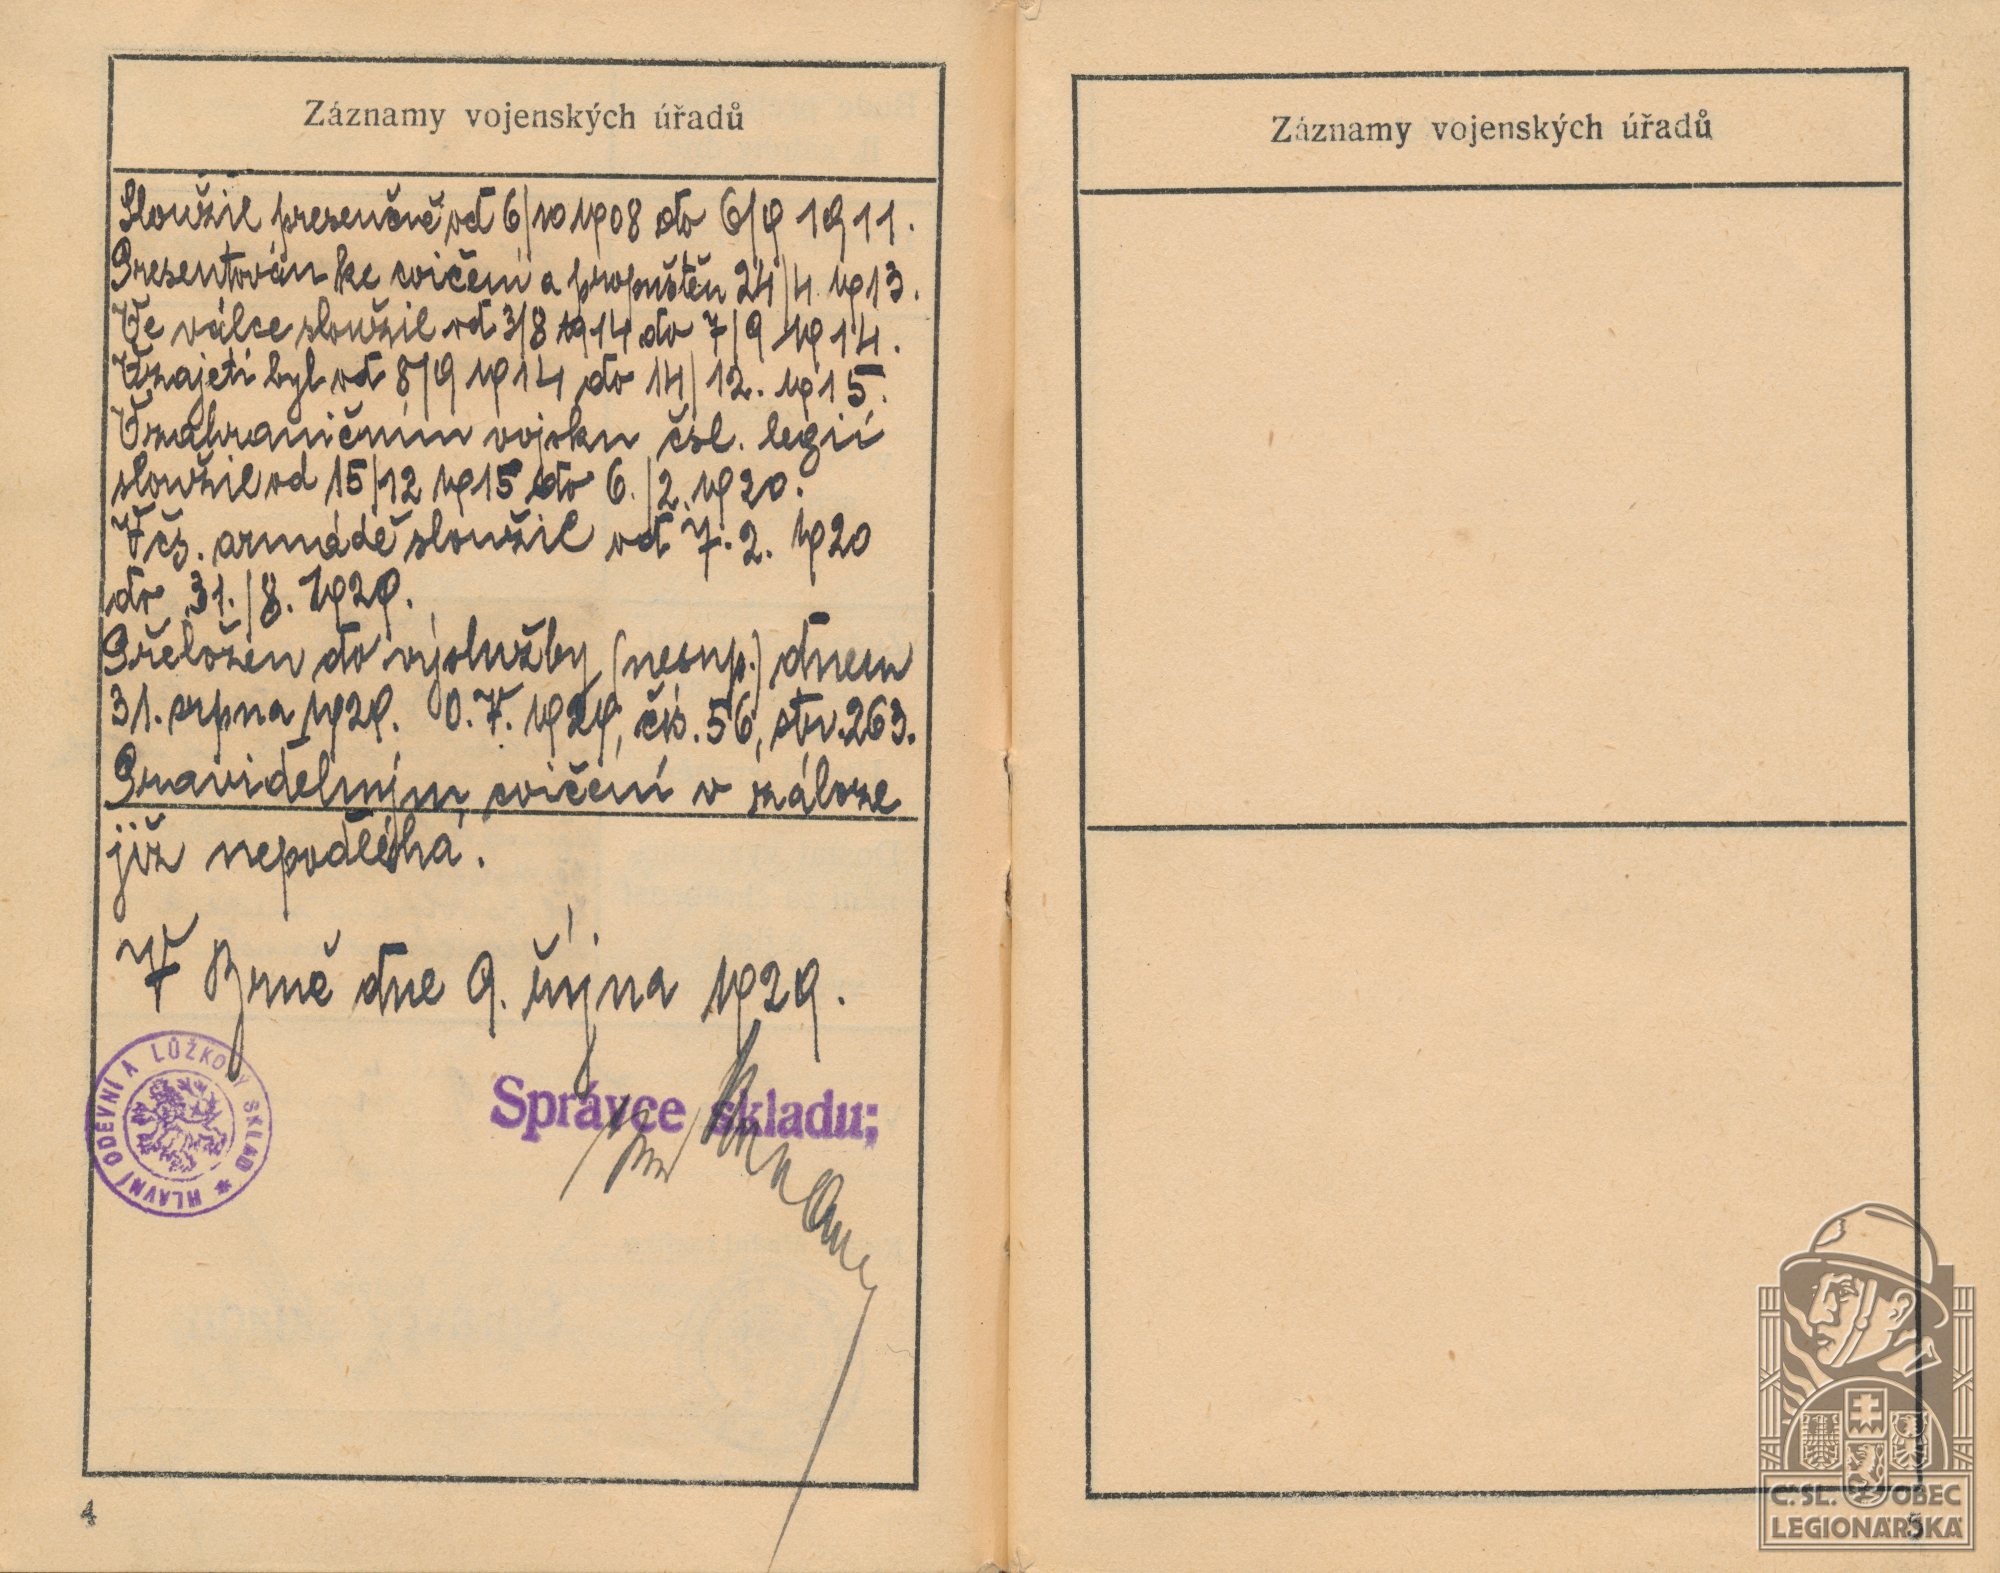 Záznamy vojenských úřadů
Sloužil presenčně od 6/10 1908 do 6/9 1911.
Presentován ke cvičení a propuštěn 24/4 1913.
Ve válce sloužil od 3/8 1914 do 7/9 1914.
V zajetí byl od 8/9 1914 do 14/12. 1915.
V zahraničním vojsku čsl. legií
sloužil od 15/12 1915 do 6./2. 1920.
V čs. armádě sloužil od 7. 2. 1920
do 31./8. 1929.
Přeložen do výslužby (nesup.) dnem
31. srpna 1929. O.V. 1929, čís. 56, str. 263.
Pravidelným cvičení v záloze
již nepodléhá.
V Brně dne 9. října 1929.
HLAVNÍ ODĚVNÍ A LŮŽKOVÝ SKLAD *
Správce skladu:
4
Záznamy vojenských úřadů
Č. SL. OBEC
LEGIONÁŘSKÁ
5